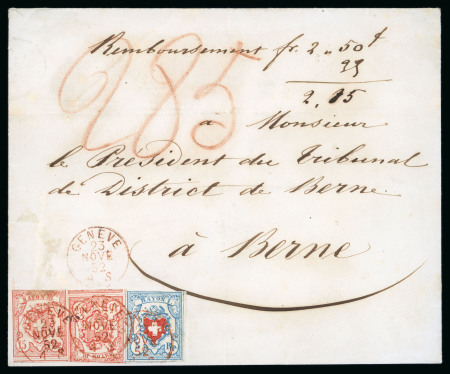 Remboursement fr. 2 „ 50 ct
285
2.85
à
Monsieur
le Président du Tribunal
de District de Berne.
à Berne
GENÈVE
23
NOVE
52
4 S
RAYON
RAYON
RAYON
NOVE
52
NOVE